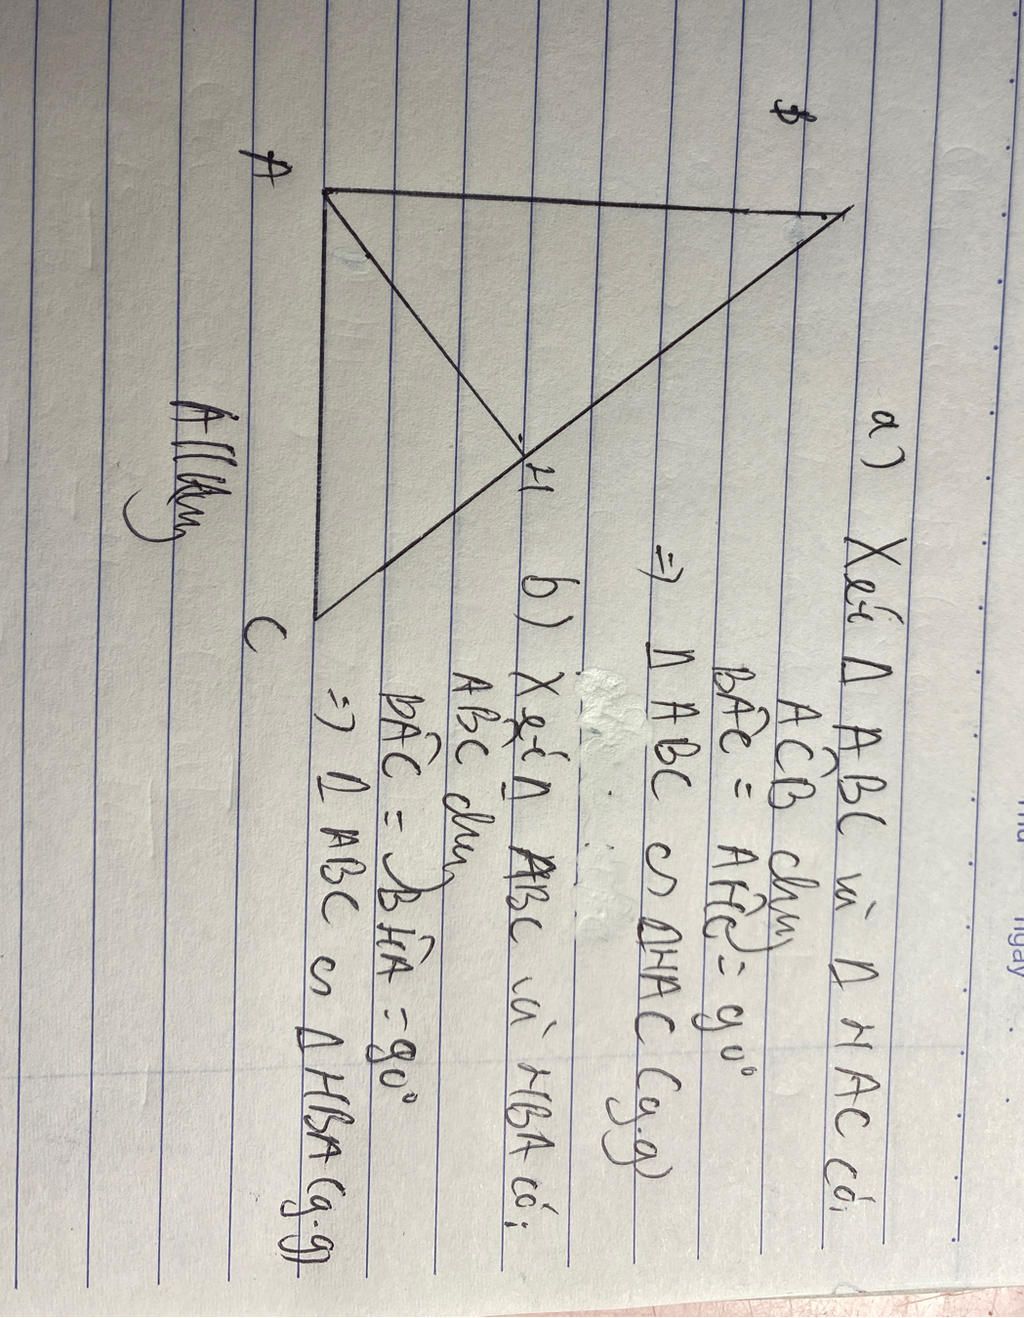 a) Xét Δ ABC và Δ HAC có:
AĈB chung
BÂC = AĤC = 90°
=> Δ ABC ∽ Δ HAC (g.g)
b) Xét Δ ABC và HBA có:
AB̂C chung
BÂC = BĤA = 90°
=> Δ ABC ∽ Δ HBA (g.g)
B
A
H
C
ngày